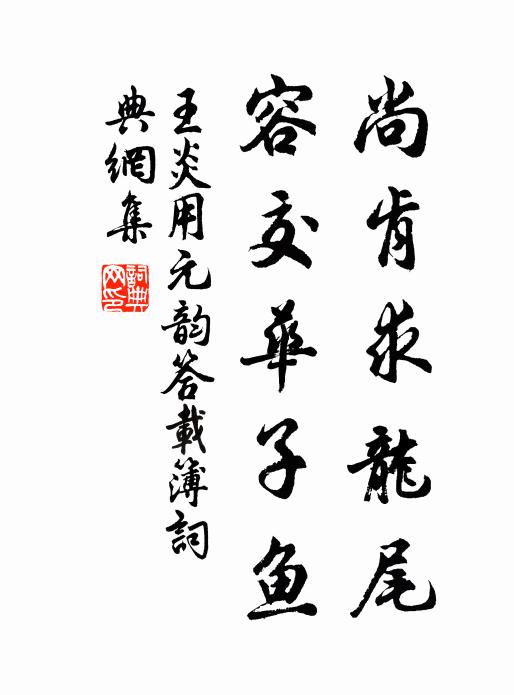 尚肯求龍尾
容交華子魚
王炎用元韵答載簿詞
典網集
詞典網印